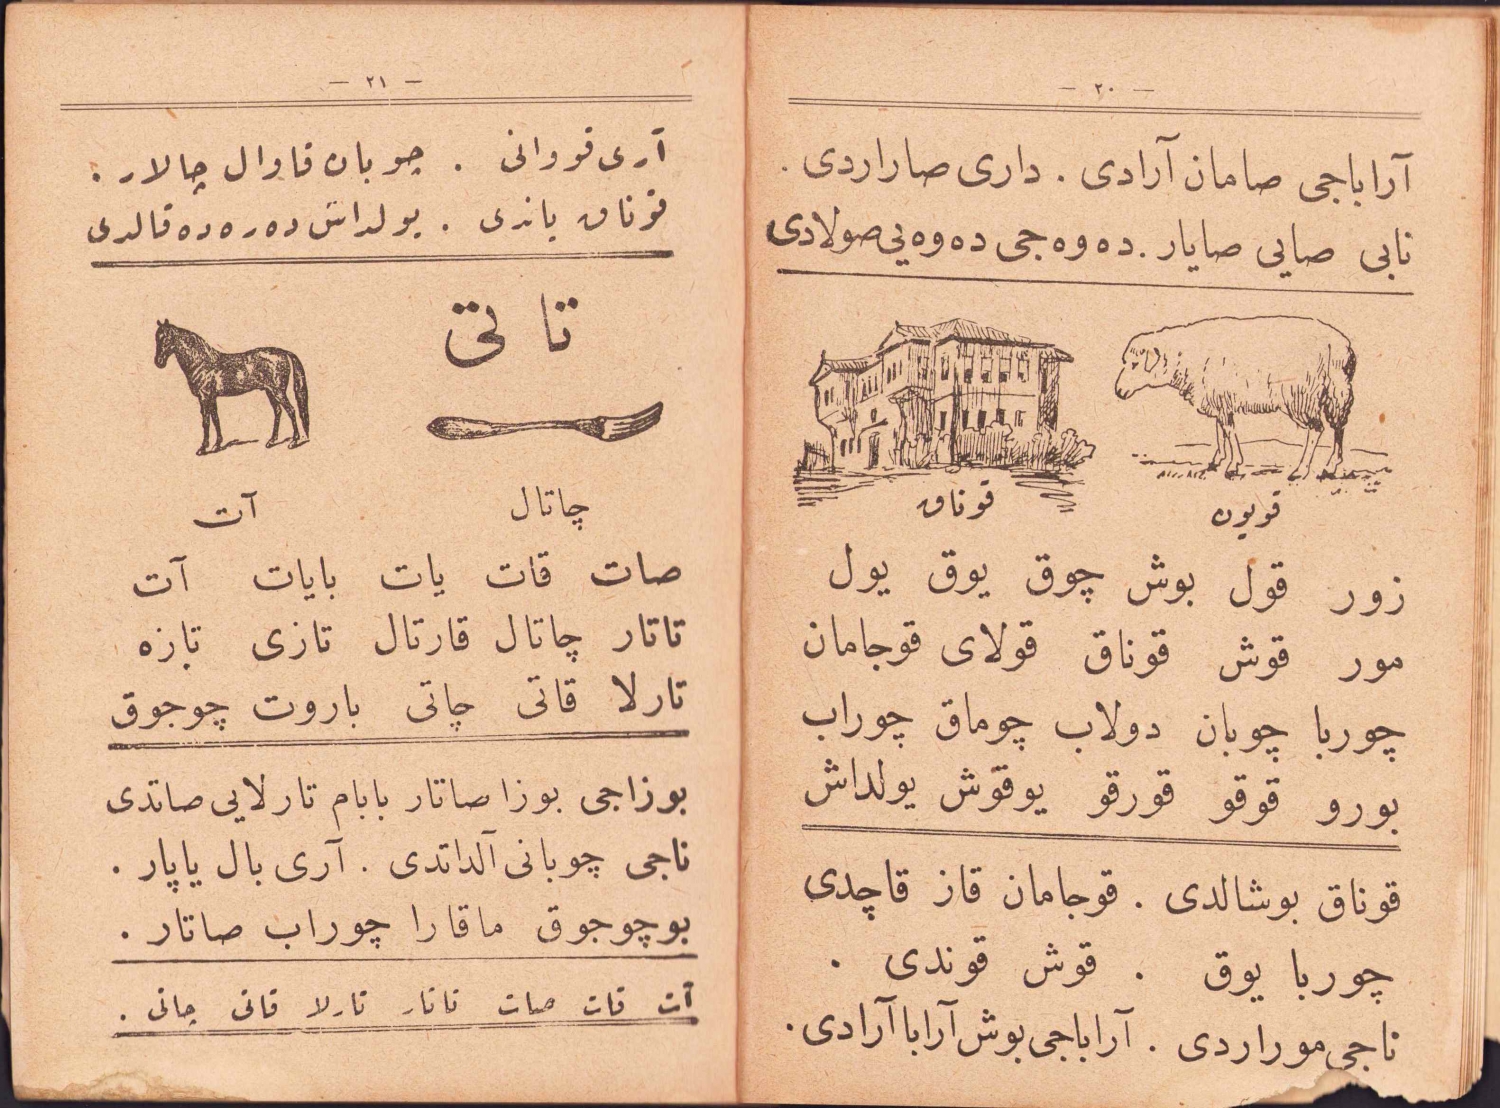 — ٢٠ —
آراباجی صامان آرادی . داری صاراردی .
نابی صایی صایار . ده‌وه‌جی ده‌وه‌یی صولادی
قویون
قوناق
زور قول بوش چوق یوق یول
مور قوش قوناق قولای قوجامان
چوربا چوبان دولاب چوماق چوراب
بورو قوقو قورقو یوقوش یولداش
قوناق بوشالدی . قوجامان قاز قاچدی
چوربا یوق . قوش قوندی .
ناجی موراردی . آراباجی بوش آرابا آرادی .
— ٢١ —
آری قووانی . چوبان قاوال چالار .
قوناق یاندی . یولداش ده‌ره‌ده قالدی
تا تی
چاتال
آت
صات قات یات بایات آت
تاتار چاتال قارتال تازی تازه
تارلا قاتی چاتی باروت چوجوق
بوزاجی بوزا صاتار بابام تارلایی صاتدی
ناجی چوبانی آلداتدی . آری بال یاپار .
بو چوجوق ماقارا چوراب صاتار .
آت قات صات تاتار تارلا قاتی چاتی .